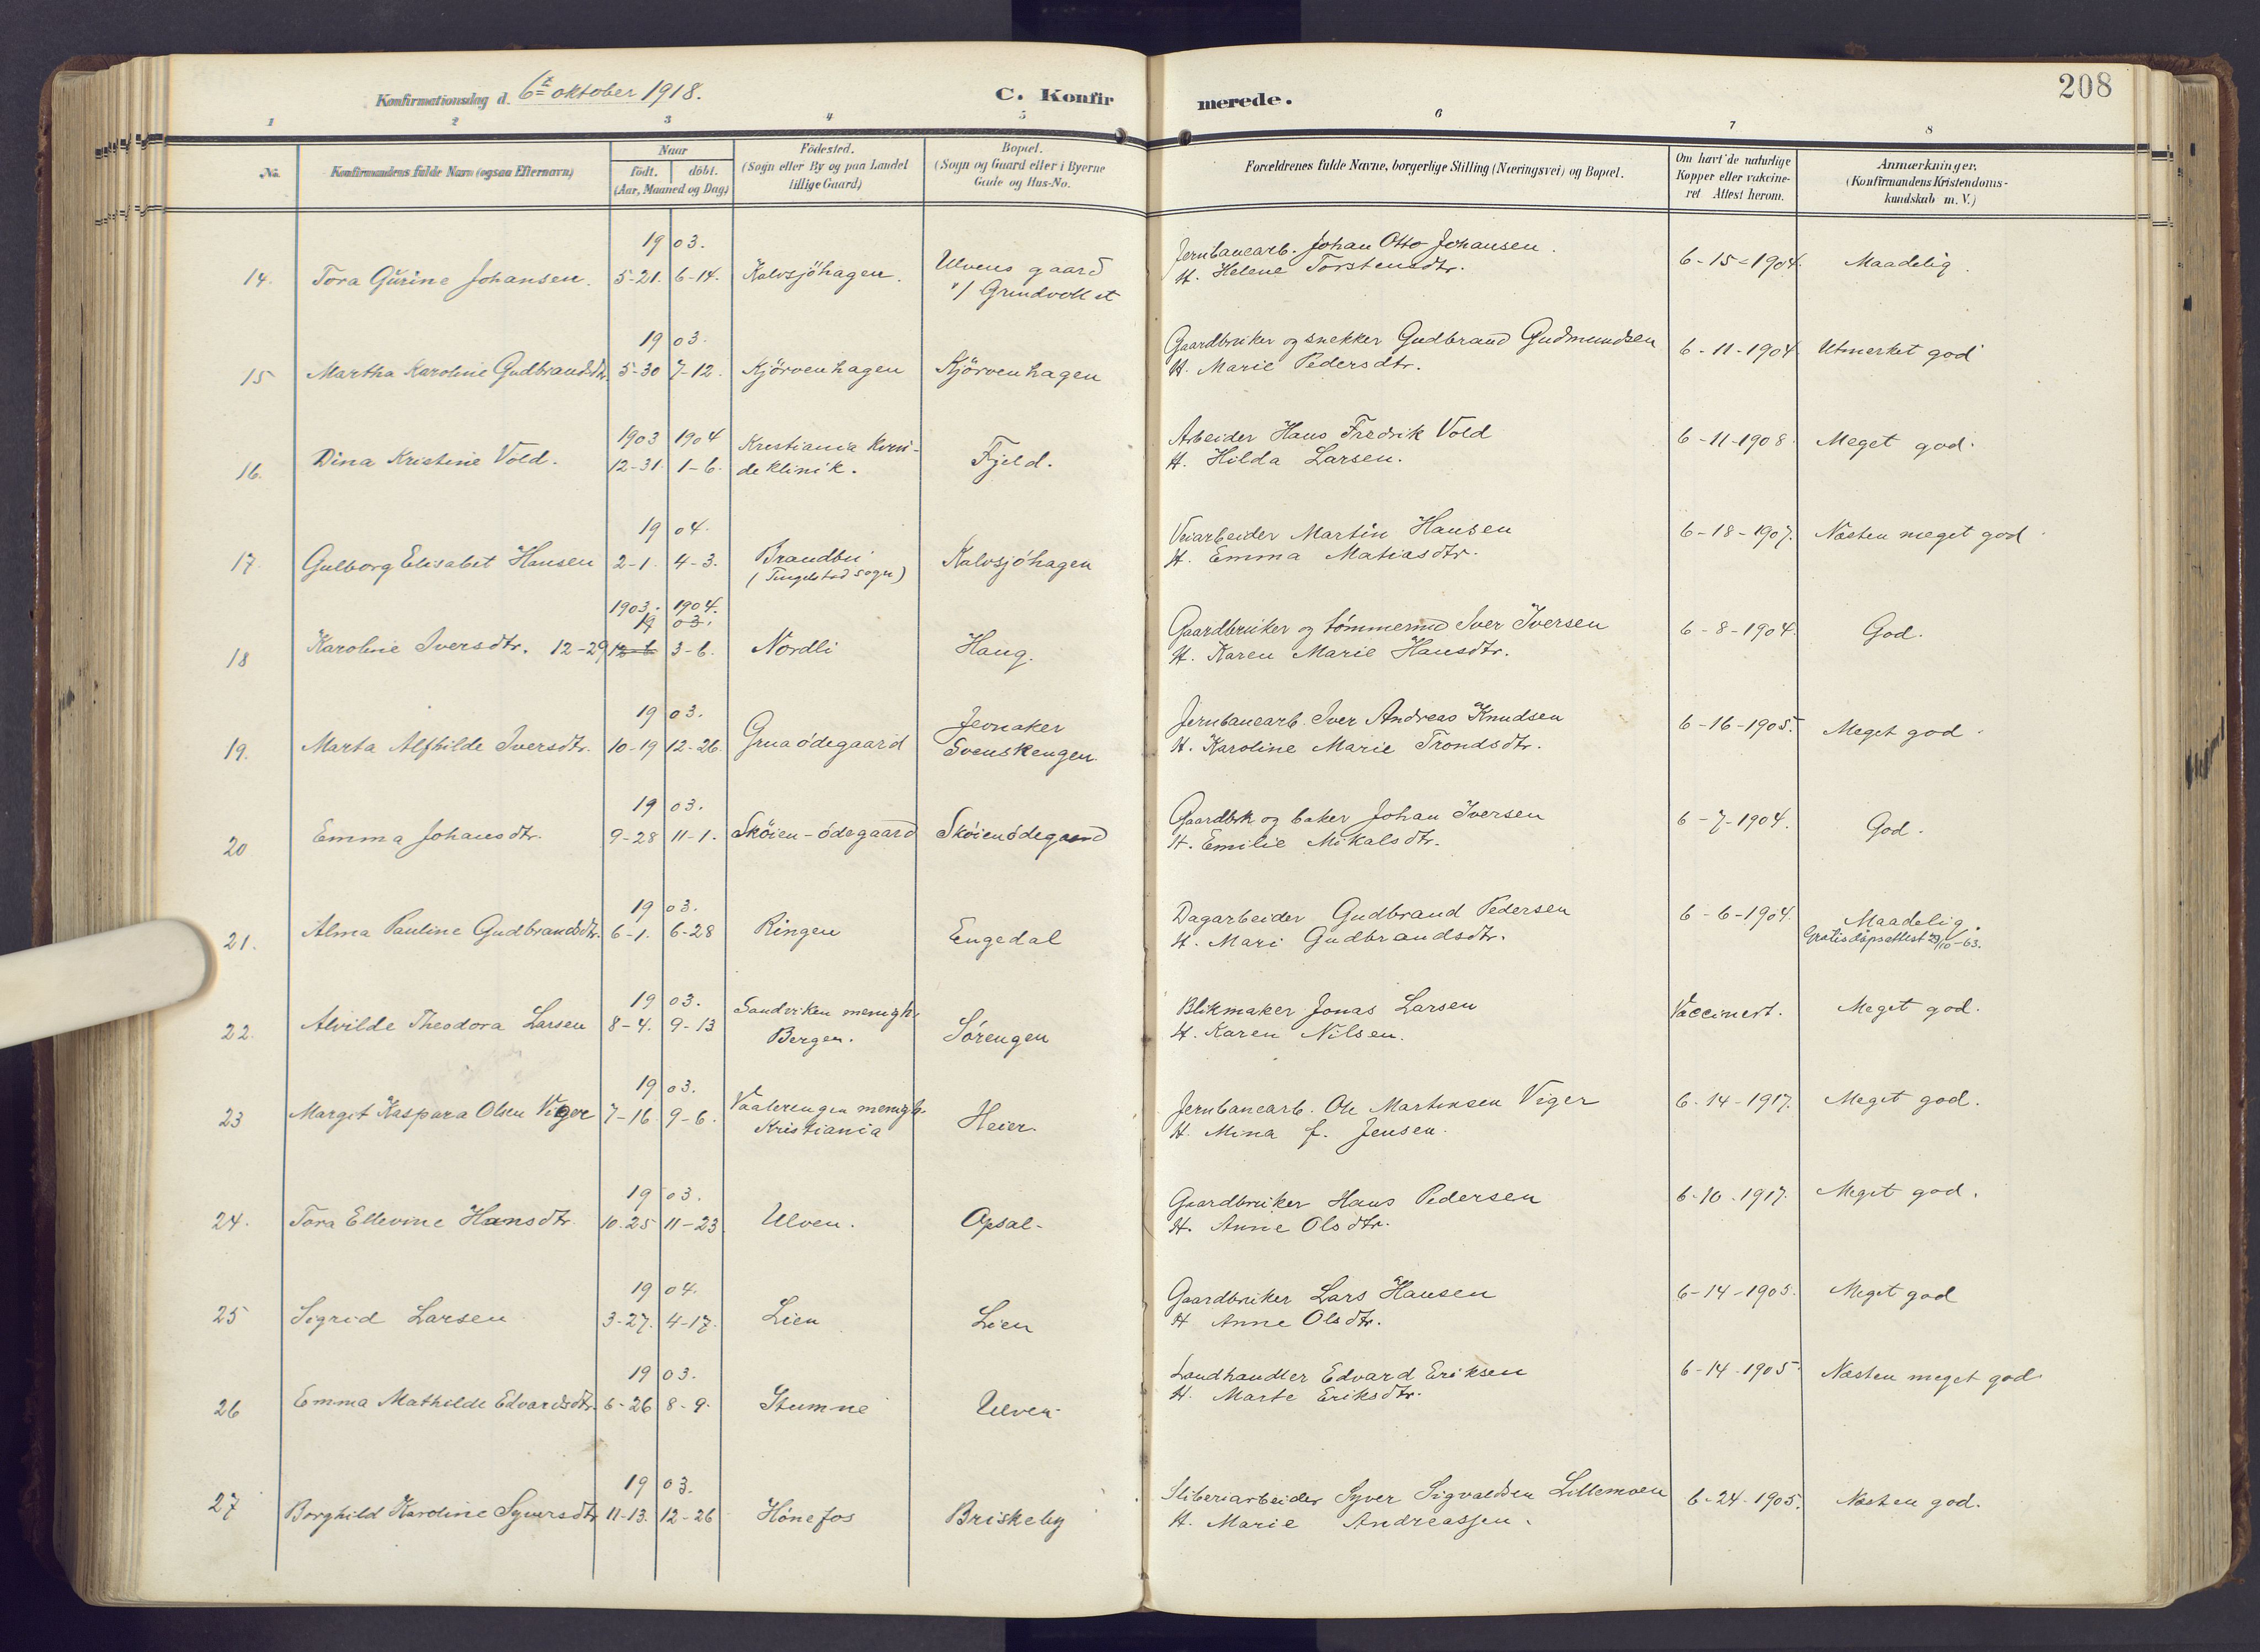 Konfirmationsdag d. 6te oktober 1918.
C. Konfirmerede.
208
1 2 3 4 5 6 7 8
No.
Konfirmandens fulde Navn (ogsaa Efternavn)
Naar
födt. döbt.
(Aar, Maaned og Dag)
Födested.
(Sogn eller By og paa Landet
tillige Gaard)
Bopæl.
(Sogn og Gaard eller i Byerne
Gade og Hus-No.
Forældrenes fulde Navne, borgerlige Stilling (Næringsvei) og Bopæl.
Om havt de naturlige
Kopper eller vakcine-
ret Attest herom.
Anmærkninger.
(Konfirmandens Kristendoms-
kundskab m. V.)
19 03.
14. Tora Gurine Johansen. 5-21. 6-14. Kalvsjöhagen. Ulvens gaard
v/ Grindvoll st
Jernbanearb. Johan Otto Johansen.
H. Helene Torstensdtr.
6-15-1904. Maadelig.
19 03.
15 Martha Karoline Gudbrandsdtr. 5-30 7-12. Kjörvenhagen Kjörvenhagen
Gaardbruker og snekker Gudbrand Gudmundsen
H. Marie Pedersdtr.
6-11-1904. Utmerket god
1903 1904
16. Dina Kristine Vold. 12-31. 1-6. Krestiania kvin-
deklinik. Fjeld.
Arbeider Hans Fredrik Vold
H. Hilda Larsen.
6-11-1908. Meget god.
19 04.
17. Gulborg Elisabet Hansen 2-1. 4-3. Brandbu
(Tingelstad sogn) Kalvsjöhagen
Veiarbeider Martin Hansen
H. Emma Matiasdtr.
6-18-1907. Næsten meget god.
1903. 1904.
19 03.
18 Karoline Iversdtr. 12-29 12-6 3-6. Nordli Haug.
Gaardbruker og tömmermd Iver Iversen
H. Karen Marie Hansdtr.
6-8-1904. God.
19 03.
19. Marta Alfhilde Iversdtr. 10-19 12-26. Gruaödegaard Jevnaker
Svenskengen.
Jernbanearb. Iver Andreas Knudsen
H. Karoline Marie Trondsdtr.
6-16-1905. Meget god.
19 03.
20 Emma Johansdtr. 9-28 11-1. Sköien-ödegaard Sköienödegaard
Gaardbrk og baker Johan Iversen
H. Emilie Mikalsdtr.
6-7-1904. God.
19 03.
21. Alma Pauline Gudbrandsdtr. 6-1. 6-28 Ringen Engedal
Dagarbeider Gudbrand Pedersen
H. Mari Gudbrandsdtr.
6-6-1904. Maadelig.
Gratis dåpsattest 29/10-63.
19 03.
22. Alvilde Theodora Larsen 8-4. 9-13 Sandviken menigh.
Bergen. Sörengen
Blikmaker Jonas Larsen
H. Karen Nilsen.
Vaccinert. Meget god.
19 03.
23 Margit Kaspara Olsen Viger 7-16. 9-6. Vaalerengen menigh.
Kristiania Heier.
Jernbanearb. Ole Martinsen Viger
H. Mina f. Jensen.
6-14-1917. Meget god.
19 03.
24. Tora Ellevine Hansdtr. 10-25 11-23. Ulven. Opsal.
Gaardbruker Hans Pedersen
H. Anne Olsdtr.
6-10-1917. Meget god.
19 04.
25 Sigrid Larsen 3-27. 4-17. Lien Lien
Gaardbruker Lars Hansen
H Anne Olsdtr.
6-14-1905. Meget god
19 03.
26 Emma Mathilde Edvardsdtr. 6-26 8-9. Stumne Ulven
Landhandler Edvard Eriksen
H. Marte Eriksdtr.
6-14-1905 Næsten meget god
19 03.
27 Borghild Karoline Syversdtr 11-13. 12-26 Hönefos Briskeby
Sliberiarbeider Syver Sigvaldsen Lillemoen
H. Marie Andreassen.
6-24-1905. Næsten god.